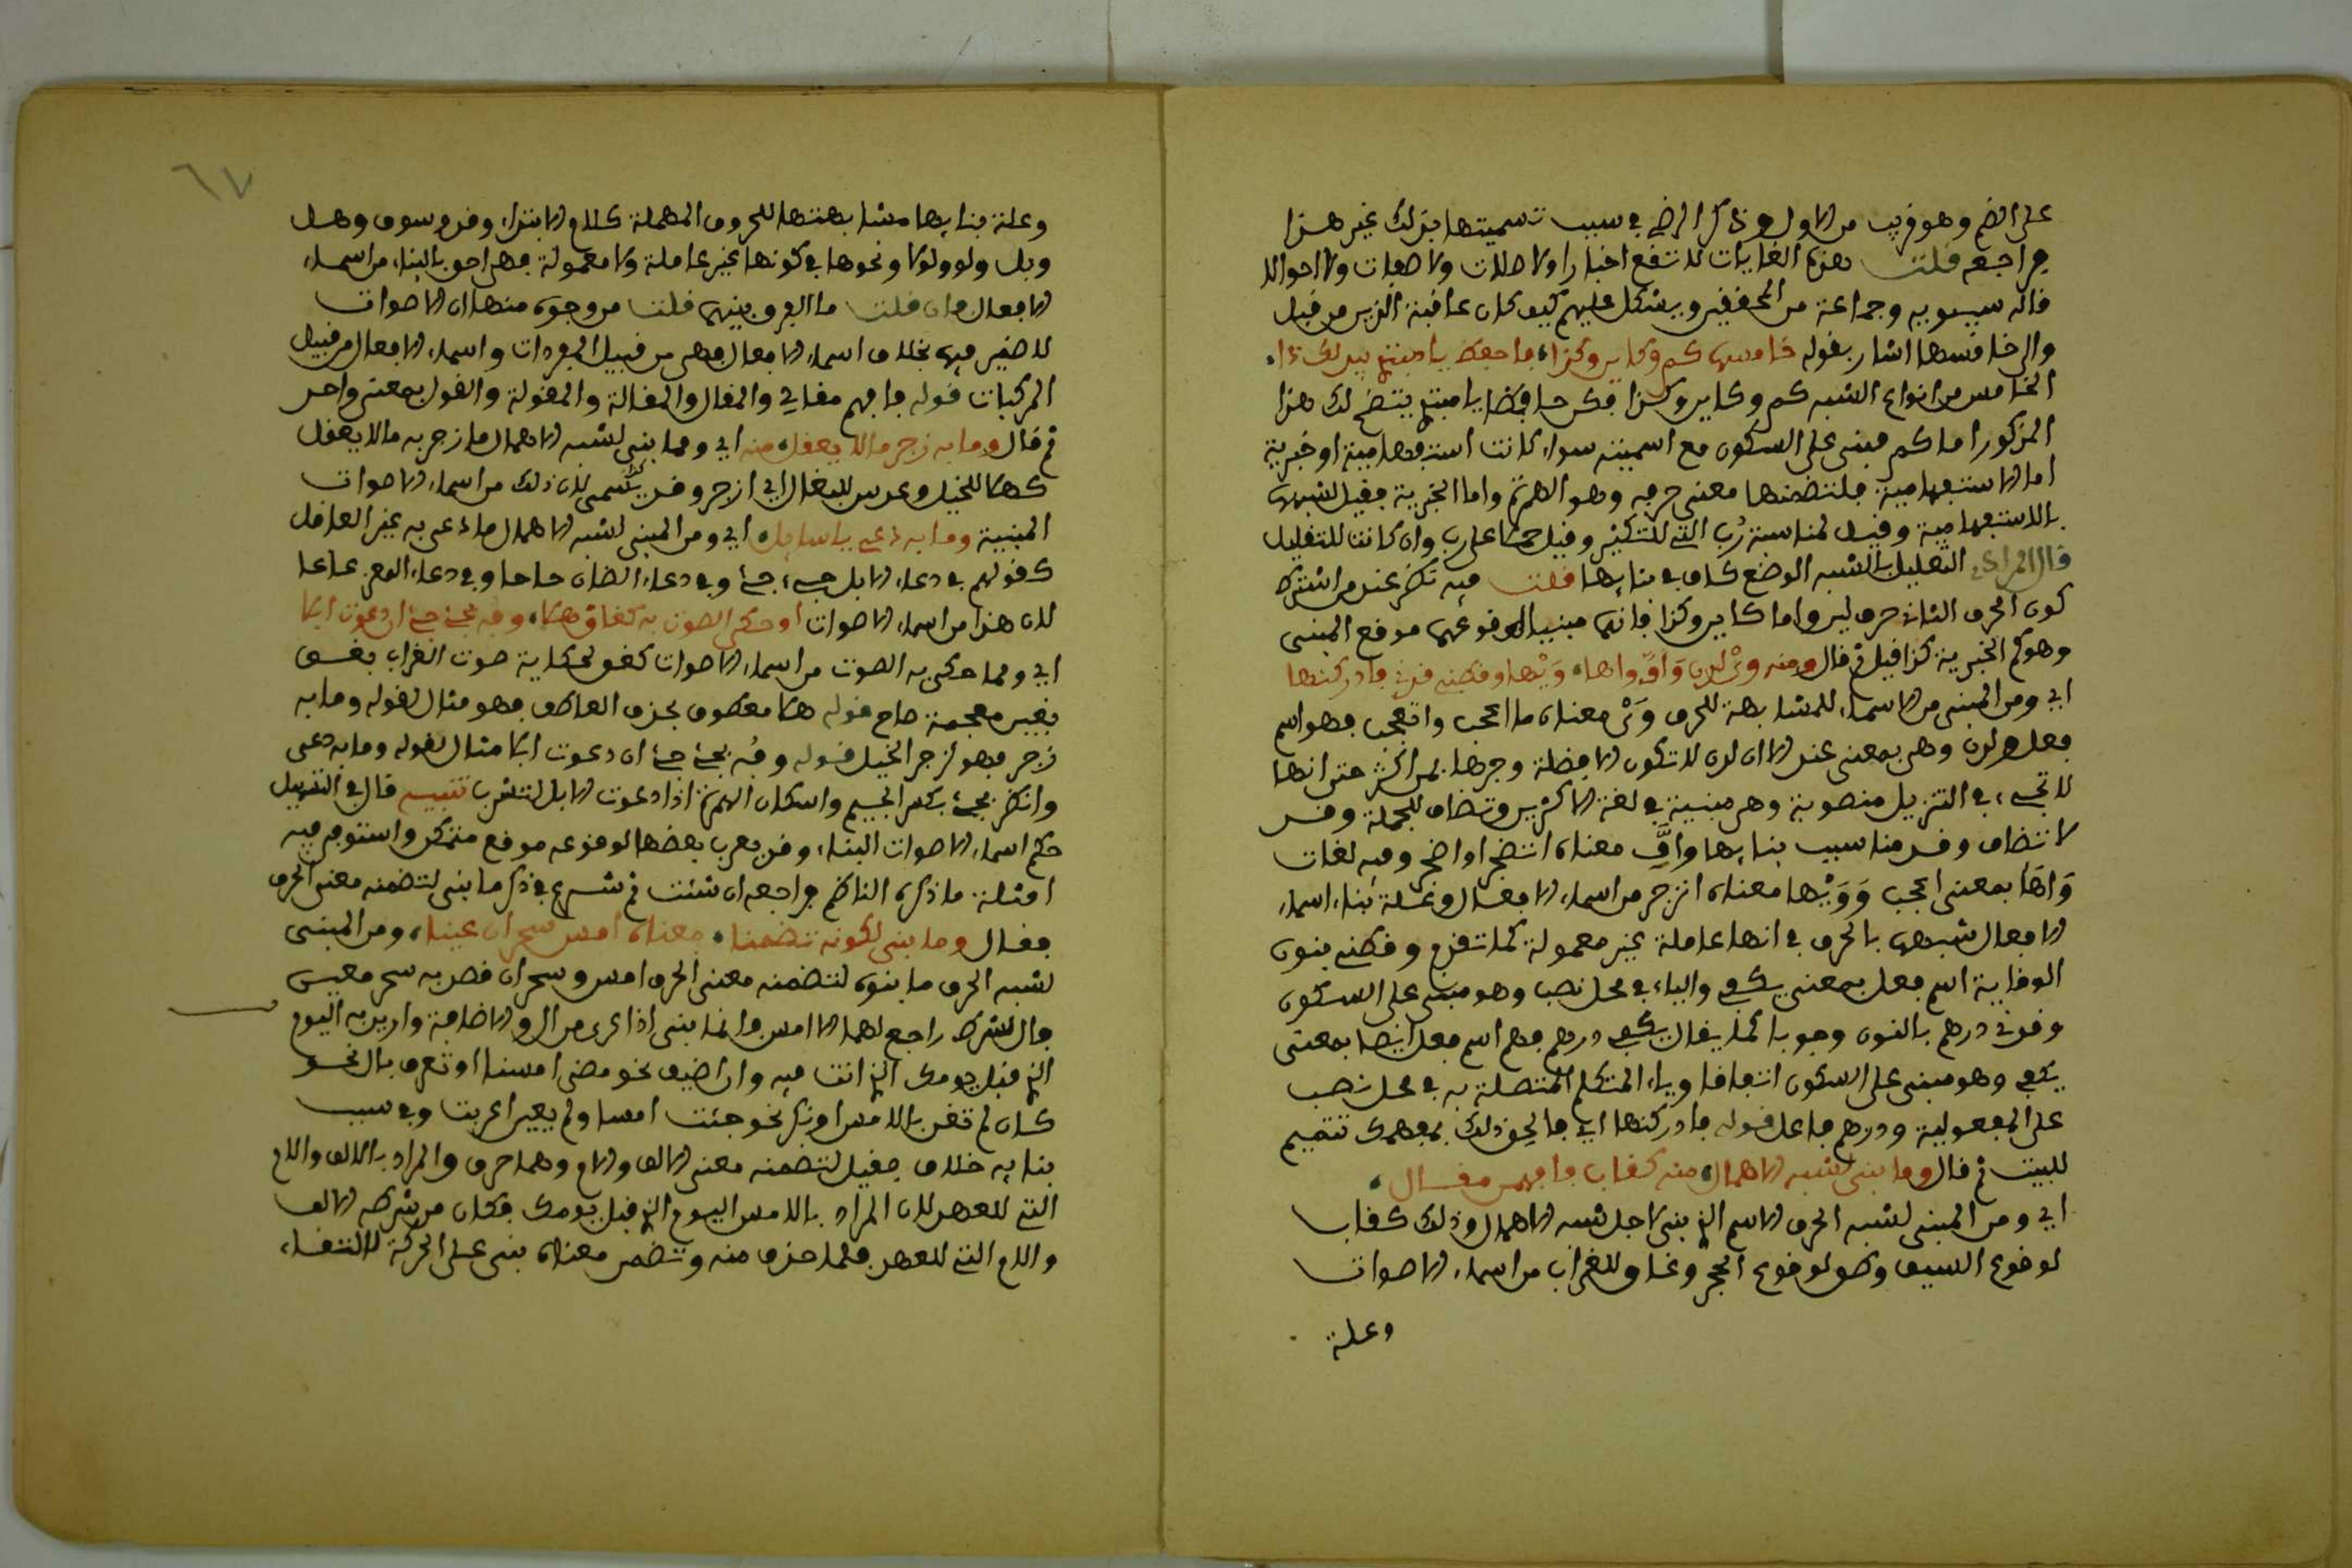 على الضم وهو قريب من الاول وذكر الرضي في سبب تسميتها بذلك غير هذا
فراجعه قلت هذه الغايات لا تقع اخبارا ولا صلات ولا صفات ولا احوالا
قاله سيبويه وجماعة من المحققين ويشكل عليهم كيف كان عاقبة الذين من قبل
والى خامسها اشار بقوله خامسها كم وكاين وكذا فاحفظ يا مبتغي
الخامس من انواع الشبه كم وكاين وكذا فكن حافظا يا مبتغي يتضح لك هذا
المذكور اما كم فمبني على السكون مع اسميته سواء كانت استفهامية او خبرية
اما الاستفهامية فلتضمنها معنى حرفه وهو الهمزة واما الخبرية فقيل لشبهها
بالاستفهامية وقيل لمناسبة رُب التي للتكثير وقيل حملا على رب وان كانت للتقليل
قال المرادي التعليل بالشبه الوضعي كاف في بنايها قلت فيه نظر عند من اشترط
كون الحرف الثاني حرف لين واما كاين وكذا فانهما مبنيان لوقوعهما موقع المبني
وهو كم الخبرية كذا قيل ثم قال ومنه وَيْ لدن وَأفٍّ واها وَيْها وقطني قدني فادركنها
اي ومن المبني من الاسماء للمشابهة للحرف وَيْ معناه ما اعجب واتعجب فهو اسم
فعل ولدن وهي بمعنى عند الا ان لدن لا تكون الا فضلة وجرها بمن اكثر حتى انها
لا تجيء في التنزيل منصوبة وهي مبنية في لغة الاكثرين وتضاف للجملة وقد
لا تضاف وقدمنا سبب بنايها وافَّ معناه اتضجر او اضجر وفيه لغات
وَاهًا بمعنى اعجب وَوَيْها معناه انزجر من اسماء الافعال وعلة بناء اسماء
الافعال شبهها بالحرف في انها عاملة غير معمولة كما تقدم وقطني بنون
الوقاية اسم فعل بمعنى يكفي والياء في محل نصب وهو مبني على السكون
وقدني درهم بالنون وجوبا كما يقال يكفي درهم فهم اسم فعل ايضا بمعنى
يكفي وهو مبني على السكون اتفاقا وياء المتكلم المتصلة به في محل نصب
على المفعولية ودرهم فاعل قوله فادركنها اي فالحق ذلك بفهمك تتميم
للبيت ثم قال وما بني لشبه الاهمال منه كقاب فافهمن مقال
اي ومن المبني لشبه الحرف الاسم الذي بني لاجل شبه الاهمال وذلك كقاب
لوقوع السيف وطق لوقوع الحجر وغاق للغراب من اسماء الاصوات
وعلة
٦٧
وعلة بنايها مشابهتها للحروف المهملة كلام الابتداء وقد وسوف وهل
وبل ولو ولولا ونحوها في كونها غير عاملة ولا معمولة فهي احق بالبناء من اسماء
الافعال فان قلت ما الفرق بينهما قلت من وجوه منها ان الاصوات
لا ضمير فيها بخلاف اسماء الافعال فهي من قبيل المفردات واسماء الافعال من قبيل
المركبات قوله فافهم مقالي والمقال والمقالة والمقولة والقول بمعنى واحد
ثم قال وما به زجر ما لا يعقل منه اي ومما بني لشبه الاهمال ما زجر به ما لا يعقل
كهلا للخيل وعدس للبغال اي ازجر وقد لان ذلك من اسماء الاصوات
المبنية وما به دعي يا سايل اي ومن المبني لشبه الاهمال ما دعي به غير العاقل
كقولهم في دعاء الابل جيء جئ وفي دعاء الضان حاحا وفي دعاء المعز عاعا
لان هذا من اسماء الاصوات او حكي الصوت به كغاق هلا وفه بجئ جئ ان دعوت ابلا
اي ومما حكي به الصوت من اسماء الاصوات كقولي حكاية صوت الغراب بغسق
بغين معجمة صاح قوله هلا معطوف بحذف العاطف فهو مثال لقوله وما به
زجر فهو لزجر الخيل قوله وفُه بجئ جئ ان دعوت ابلا مثال لقوله وما به دعي
وانطق بجئ بكسر الجيم واسكان الهمزة اذا دعوت الابل لتشرب تنبيه قال في التسهيل
حكم اسماء الاصوات البناء وقد يعرب بعضها لوقوعه موقع متمكن واستوفى فيه
امثلة ما ذكره الناظم فراجعه ان شئت ثم شرع في ذكر ما بني لتضمنه معنى الحرف
فقال وما بني لكونه تضمنا معناه امس سحر ان عينا ومن المبني
لشبه الحرف ما بنوه لتضمنه معنى الحرف امس وسحر ان قصد به سحر معين
فالشرط راجع لهما الا امس وانما بني اذا عري من ال والاضافة واريد به اليوم
الذي قبل يومك الذي انت فيه وان اضيف نحو مضى امسنا او تعرف بال نحو
كان لم تغن بالامس او نكر نحو جئت امسا ولم يعين اعربت وفي سبب
بنايه خلاف فقيل لتضمنه معنى الالف والام وهما حرف والمراد بالالف واللام
التي للعهد لان المراد بالامس اليوم الذي قبل يومك فكان من شرطه الالف
واللام التي للعهد فلما حذف منه وتضمن معناه بني على الحركة لالتقاء